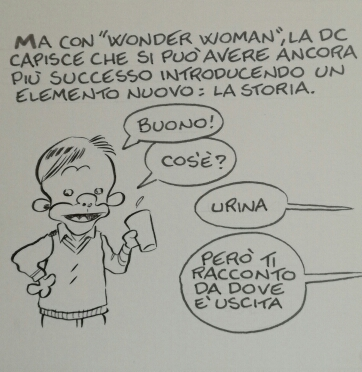 MA CON "WONDER WOMAN", LA DC
CAPISCE CHE SI PUÒ AVERE ANCORA
PIÙ SUCCESSO INTRODUCENDO UN
ELEMENTO NUOVO: LA STORIA.
BUONO!
COS'È?
URINA
PERÒ TI
RACCONTO
DA DOVE
E' USCITA